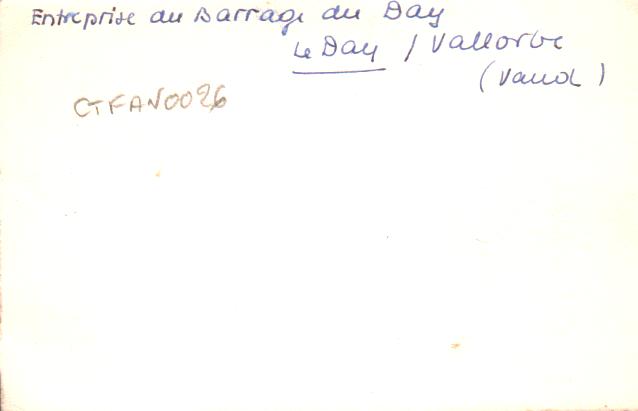 Entreprise du Barrage du Day
Le Day / Vallorbe
(Vaud)
CTFAN0026